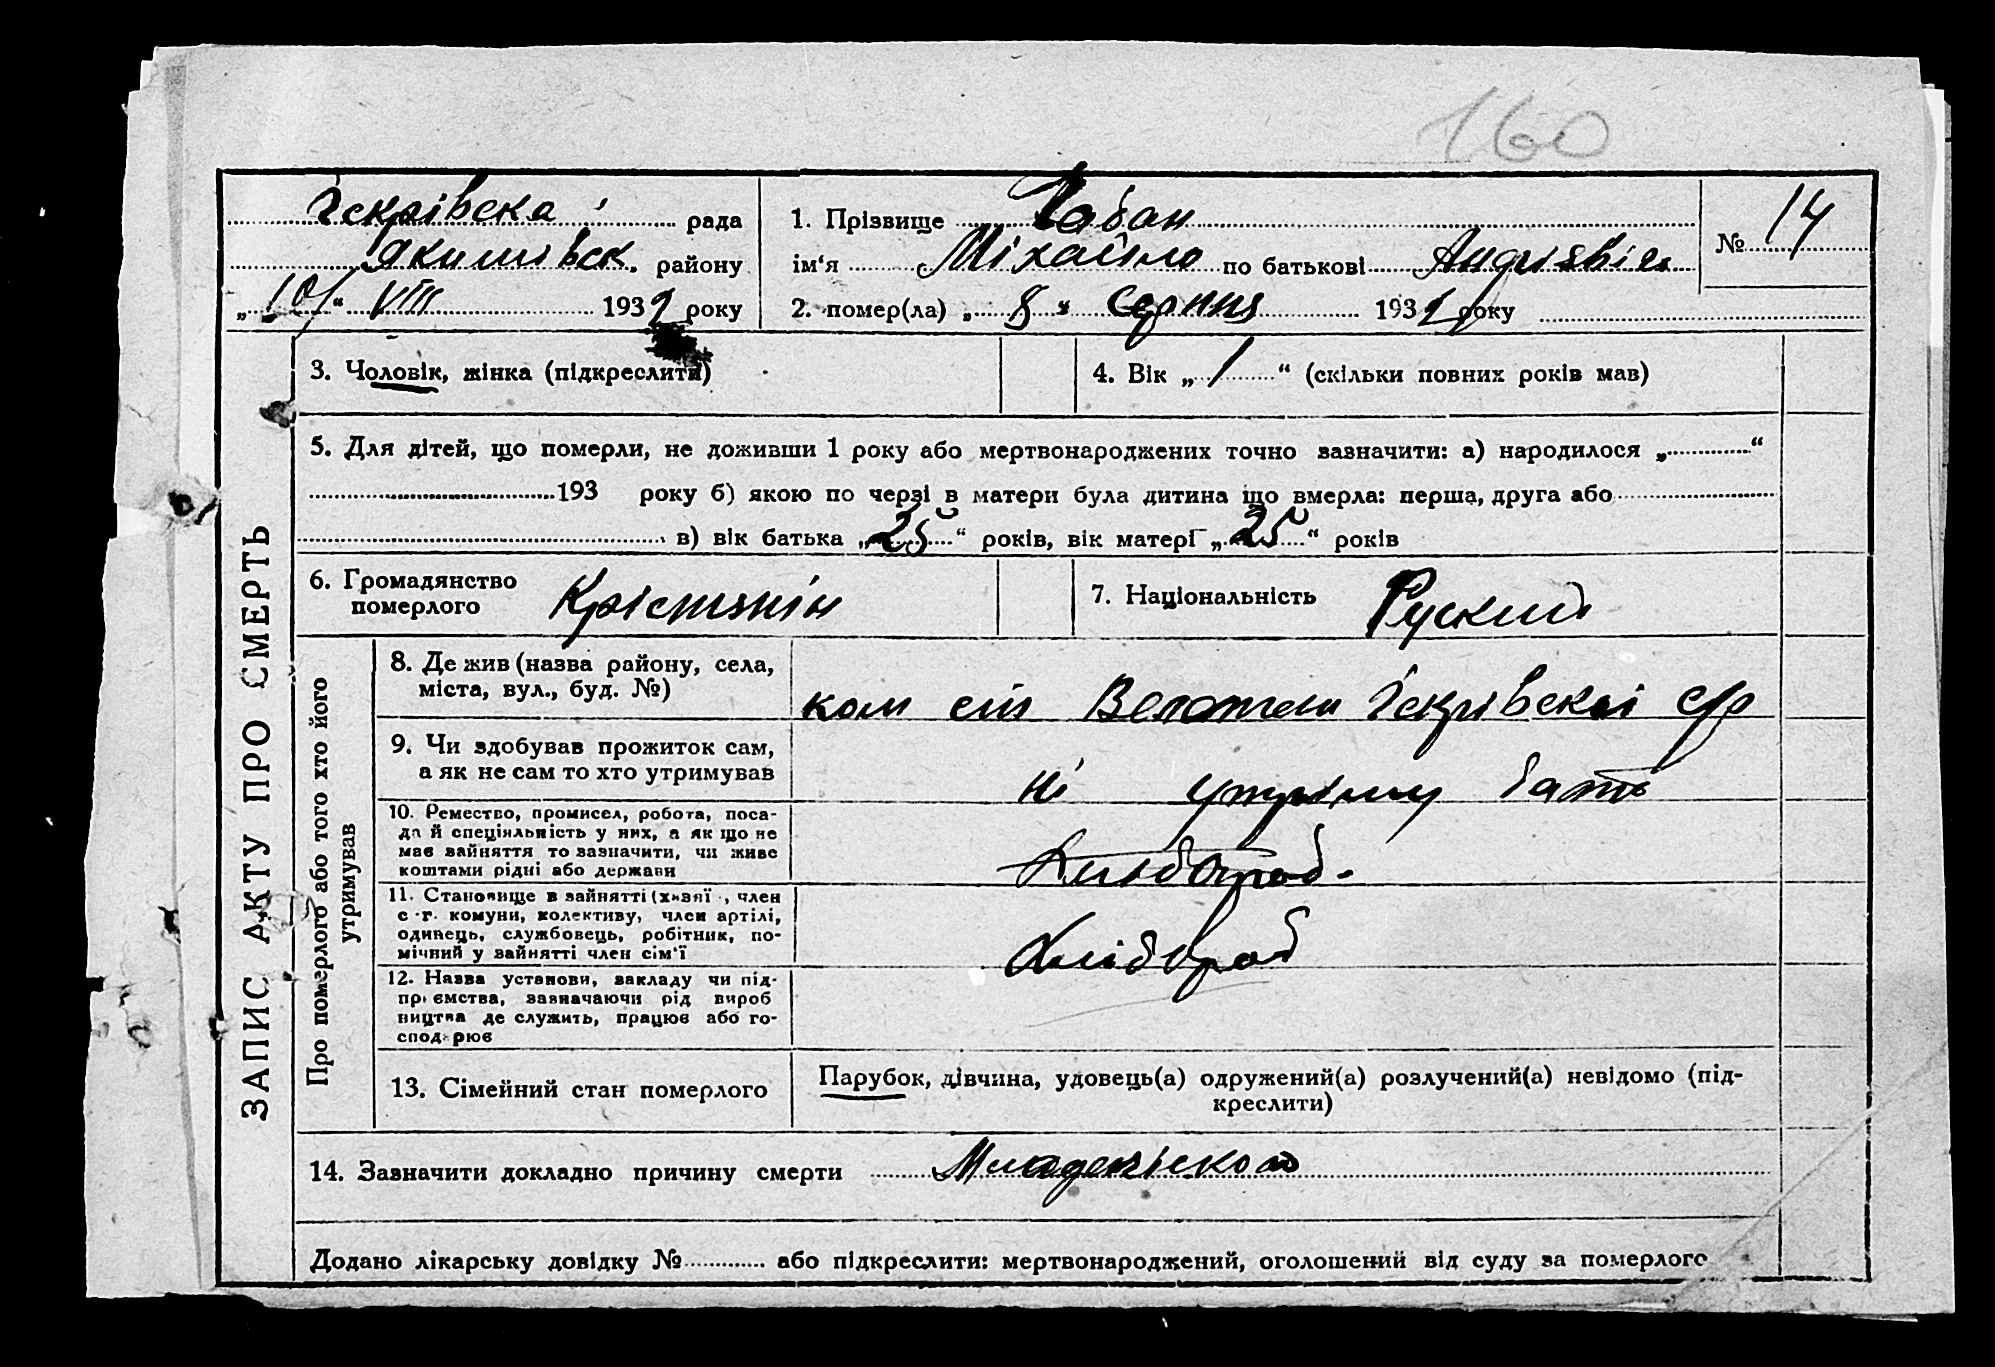 160
Іскрівска рада
Якимівск. району
„10/“ VIII 1932 року
1. Прізвище Чабан
ім‘я Міхайло по батькові Андрієвіч
2. помер(ла) „8“ Серпня 1932 року
№ 14
ЗАПИС АКТУ ПРО СМЕРТЬ
3. Чоловік, жінка (підкреслити)
4. Вік „1“ (скільки повних років мав)
5. Для дітей, що померли, не доживши 1 року або мертвонароджених точно зазначити: а) народилося „ “
193 року б) якою по черзі в матери була дитина що вмерла: перша, друга або
в) вік батька „25“ років, вік матері „25“ років
6. Громадянство
померлого Крістянін
7. Національність Руский
Про померлого або того хто його
утримував
8. Де жив (назва району, села,
міста, вул., буд. №)
ком сіл Іскрівскоі с/р
9. Чи здобував прожиток сам,
а як не сам то хто утримував
ні утриму бать
10. Ремество, промисел, робота, поса-
да й спеціяльність у них, а як що не
має зайняття то зазначити, чи живе
коштами рідні або держави
Хлібороб.
11. Становище в зайнятті (хазяї , член
с.-г. комуни, колективу, член артілі,
одинець, службовець, робітник, по-
мічний у зайнятті член сім‘ї
Хлібороб
12. Назва установи, закладу чи під-
приємства, зазначаючи рід вироб
ництва де служить, працює або го-
сподарює
13. Сімейний стан померлого
Парубок, дівчина, удовець(а) одружений(а) розлучений(а) невідомо (під-
креслити)
14. Зазначити докладно причину смерти Младеніскою
Додано лікарську довідку № або підкреслити: мертвонароджений, оголошений від суду за померлого